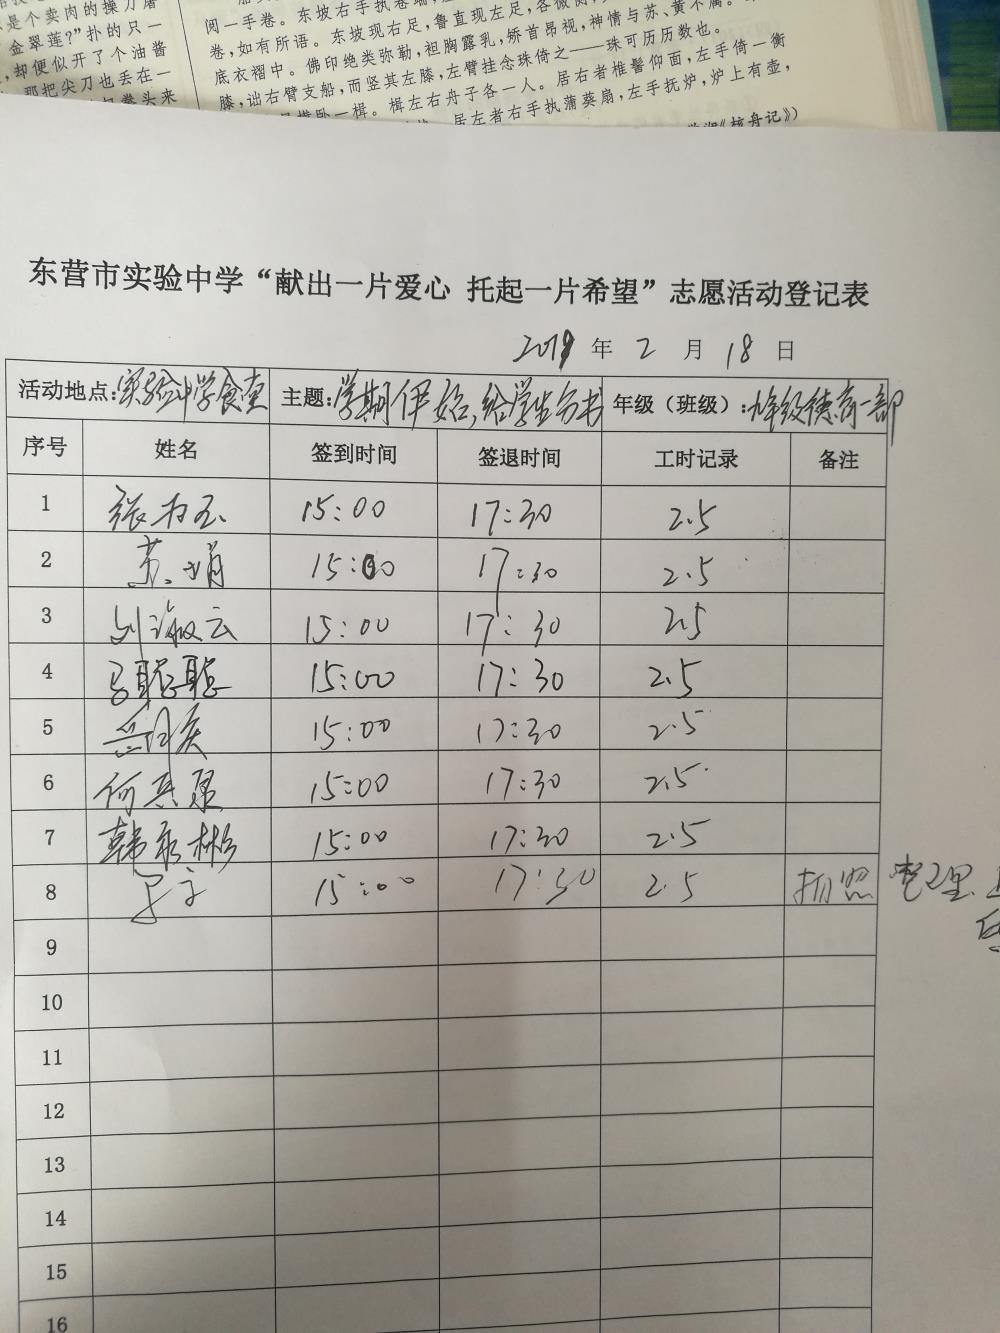 是个卖肉的操刀
金翠莲？”扑的只一
却便似开了个油酱
那把尖刀也丢在一
拳头来
阅一手卷。东坡右手执卷端，
卷，如有所语。东坡现右足，鲁直现左足，各微
底衣褶中。佛印绝类弥勒，袒胸露乳，矫首昂视，神情与苏、黄不属。
膝，诎右臂支船，而竖其左膝，左臂挂念珠倚之——珠可历历数也。
横卧一楫。楫左右舟子各一人。居右者椎髻仰面，左手倚一衡
居左者右手执蒲葵扇，左手抚炉，炉上有壶，
《核舟记》）
东营市实验中学“献出一片爱心 托起一片希望”志愿活动登记表
2019 年 2 月 18 日
活动地点：实验中学食堂 主题：学期伊始，给学生分书 年级（班级）：九年级德育一部
序号 姓名 签到时间 签退时间 工时记录 备注
1 15:00 17:30 2.5
2 苏娟 15:00 17:30 2.5
3 刘淑云 15:00 17:30 2.5
4 马聪聪 15:00 17:30 2.5
5 15:00 17:30 2.5
6 何 15:00 17:30 2.5
7 韩永彬 15:00 17:30 2.5
8 15:00 17:30 2.5 拍照 整理
9
10
11
12
13
14
15
16